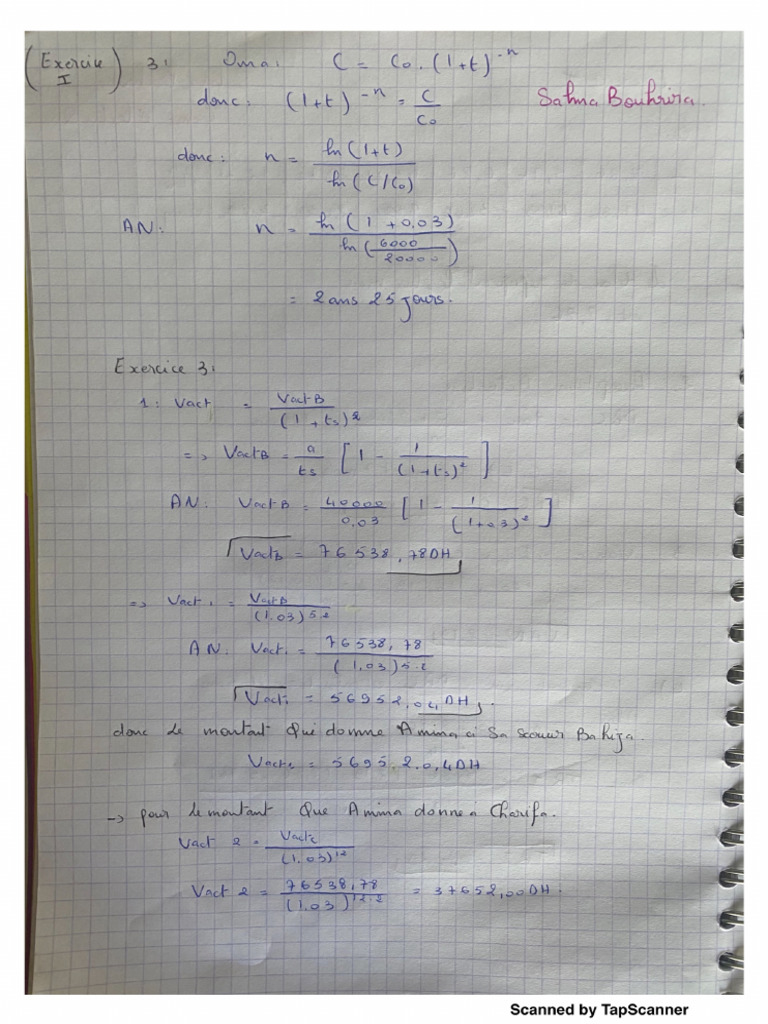 (Exercice I) 3: On a: C = C₀.(1+t)⁻ⁿ
donc: (1+t)⁻ⁿ = C/C₀ Salma Bouhrira.
donc: n = ln(1+t) / ln(C/C₀)
AN: n = ln(1+0,03) / ln(6000/20000)
= 2 ans 25 jours.
Exercice 3:
1: Vact = VactB / (1+ts)²
=> VactB = a/ts [1 - 1/(1+ts)²]
AN: VactB = 40000/0,03 [1 - 1/(1+03)²]
VactB = 76538,78DH
=> Vact₁ = VactB / (1.03)5.2
AN: Vact₁ = 76538,78 / (1,03)5.2
Vact₁ = 56952,04DH.
donc le montant Que donne Amina à Sa soeur Bahija.
Vact₁ = 5695.2.0,4DH
-> pour le montant Que Amina donne a Charifa.
Vact 2 = Vactc / (1,03)¹²
Vact 2 = 76538,78 / (1,03)¹²·² = 37652,00DH.
Scanned by TapScanner